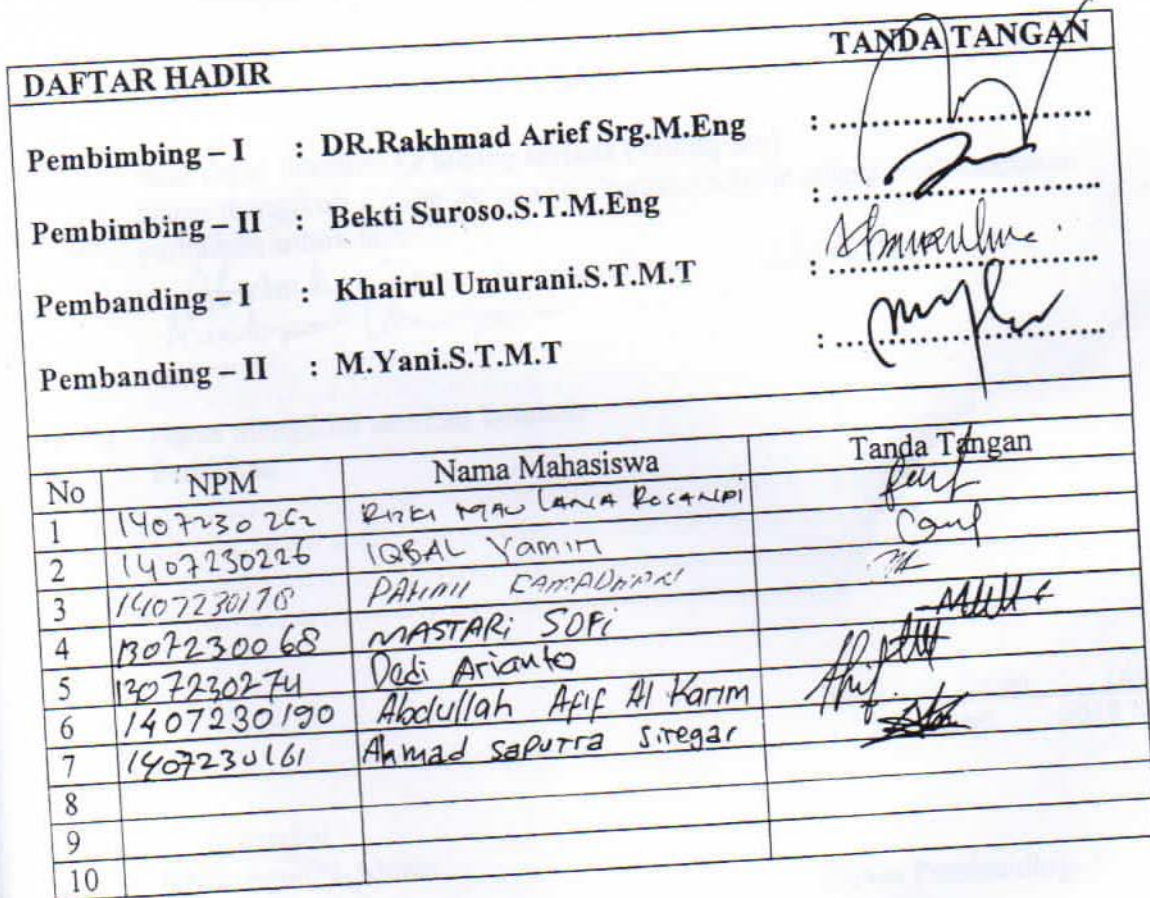 DAFTAR HADIR TANDA TANGAN
Pembimbing – I : DR.Rakhmad Arief Srg.M.Eng : ..............................
Pembimbing – II : Bekti Suroso.S.T.M.Eng : ..............................
Pembanding – I : Khairul Umurani.S.T.M.T : ..............................
Pembanding – II : M.Yani.S.T.M.T : ..............................
No NPM Nama Mahasiswa Tanda Tangan
1 1407230262 RIZKI MAULANA ROSANDI
2 1407230226 IQBAL Yamin
3 1407230178 RAMADHAN
4 1307230068 MASTARi SOFi
5 1307230274 Dedi Arianto
6 1407230190 Abdullah Afif Al Karim
7 1407230161 Ahmad saputra siregar
8
9
10